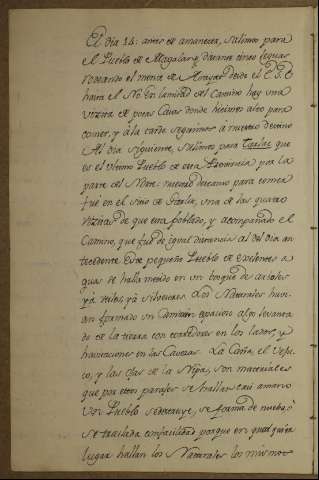 El dia 14: antes de amanecer, salimos para
el Pueblo de Magalang distante cinco leguas
rodeando el monte de Arayat desde el E.S.E
hasta el No. En la mitad del Camino hay una
vizita de pocas Casas donde hicimos alto para
comer, y à la tarde seguimos à nuestro destino
Al dia siguiente, salimos para Tarlac que
es el ultimo Pueblo de esta Provincia por la
parte del Norte: nuestro descanso para comer
fué en el sitio de una de las quatro
vizitas de que esta poblado, y acompañando el
Camino, que fué de igual distancia al del dia an
tecedente. Este pequeño Pueblo de excelentes a
guas se halla metido en un bosque de arboles
yà utiles, yà silvestres. Los Naturales havi-
an formado un Camarin espacioso algo levanta
do de la tierra con corredores en los lados, y
havitaciones en las Cavezas. La Caña, el Veju-
co, y las ojas de la Nipa, son materiales
que por estos parages se hallan tan à mano
Un Pueblo se destruye, se forma de nuebo, ò
se traslada con facilidad porque en qualquiera
lugar hallan los Naturales los mismos